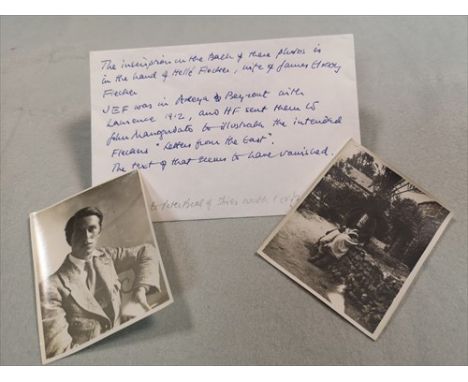 The inscription on the Back of these photos is
in the hand of Hellé Flecker, wife of James Elroy
Flecker
JEF was in Areya & Beyrout with
Lawrence 1912, and HF sent them to
John Mavrogordato to illustrate the intended
Fleckers "Letters from the East".
The text of that seems to have vanished.